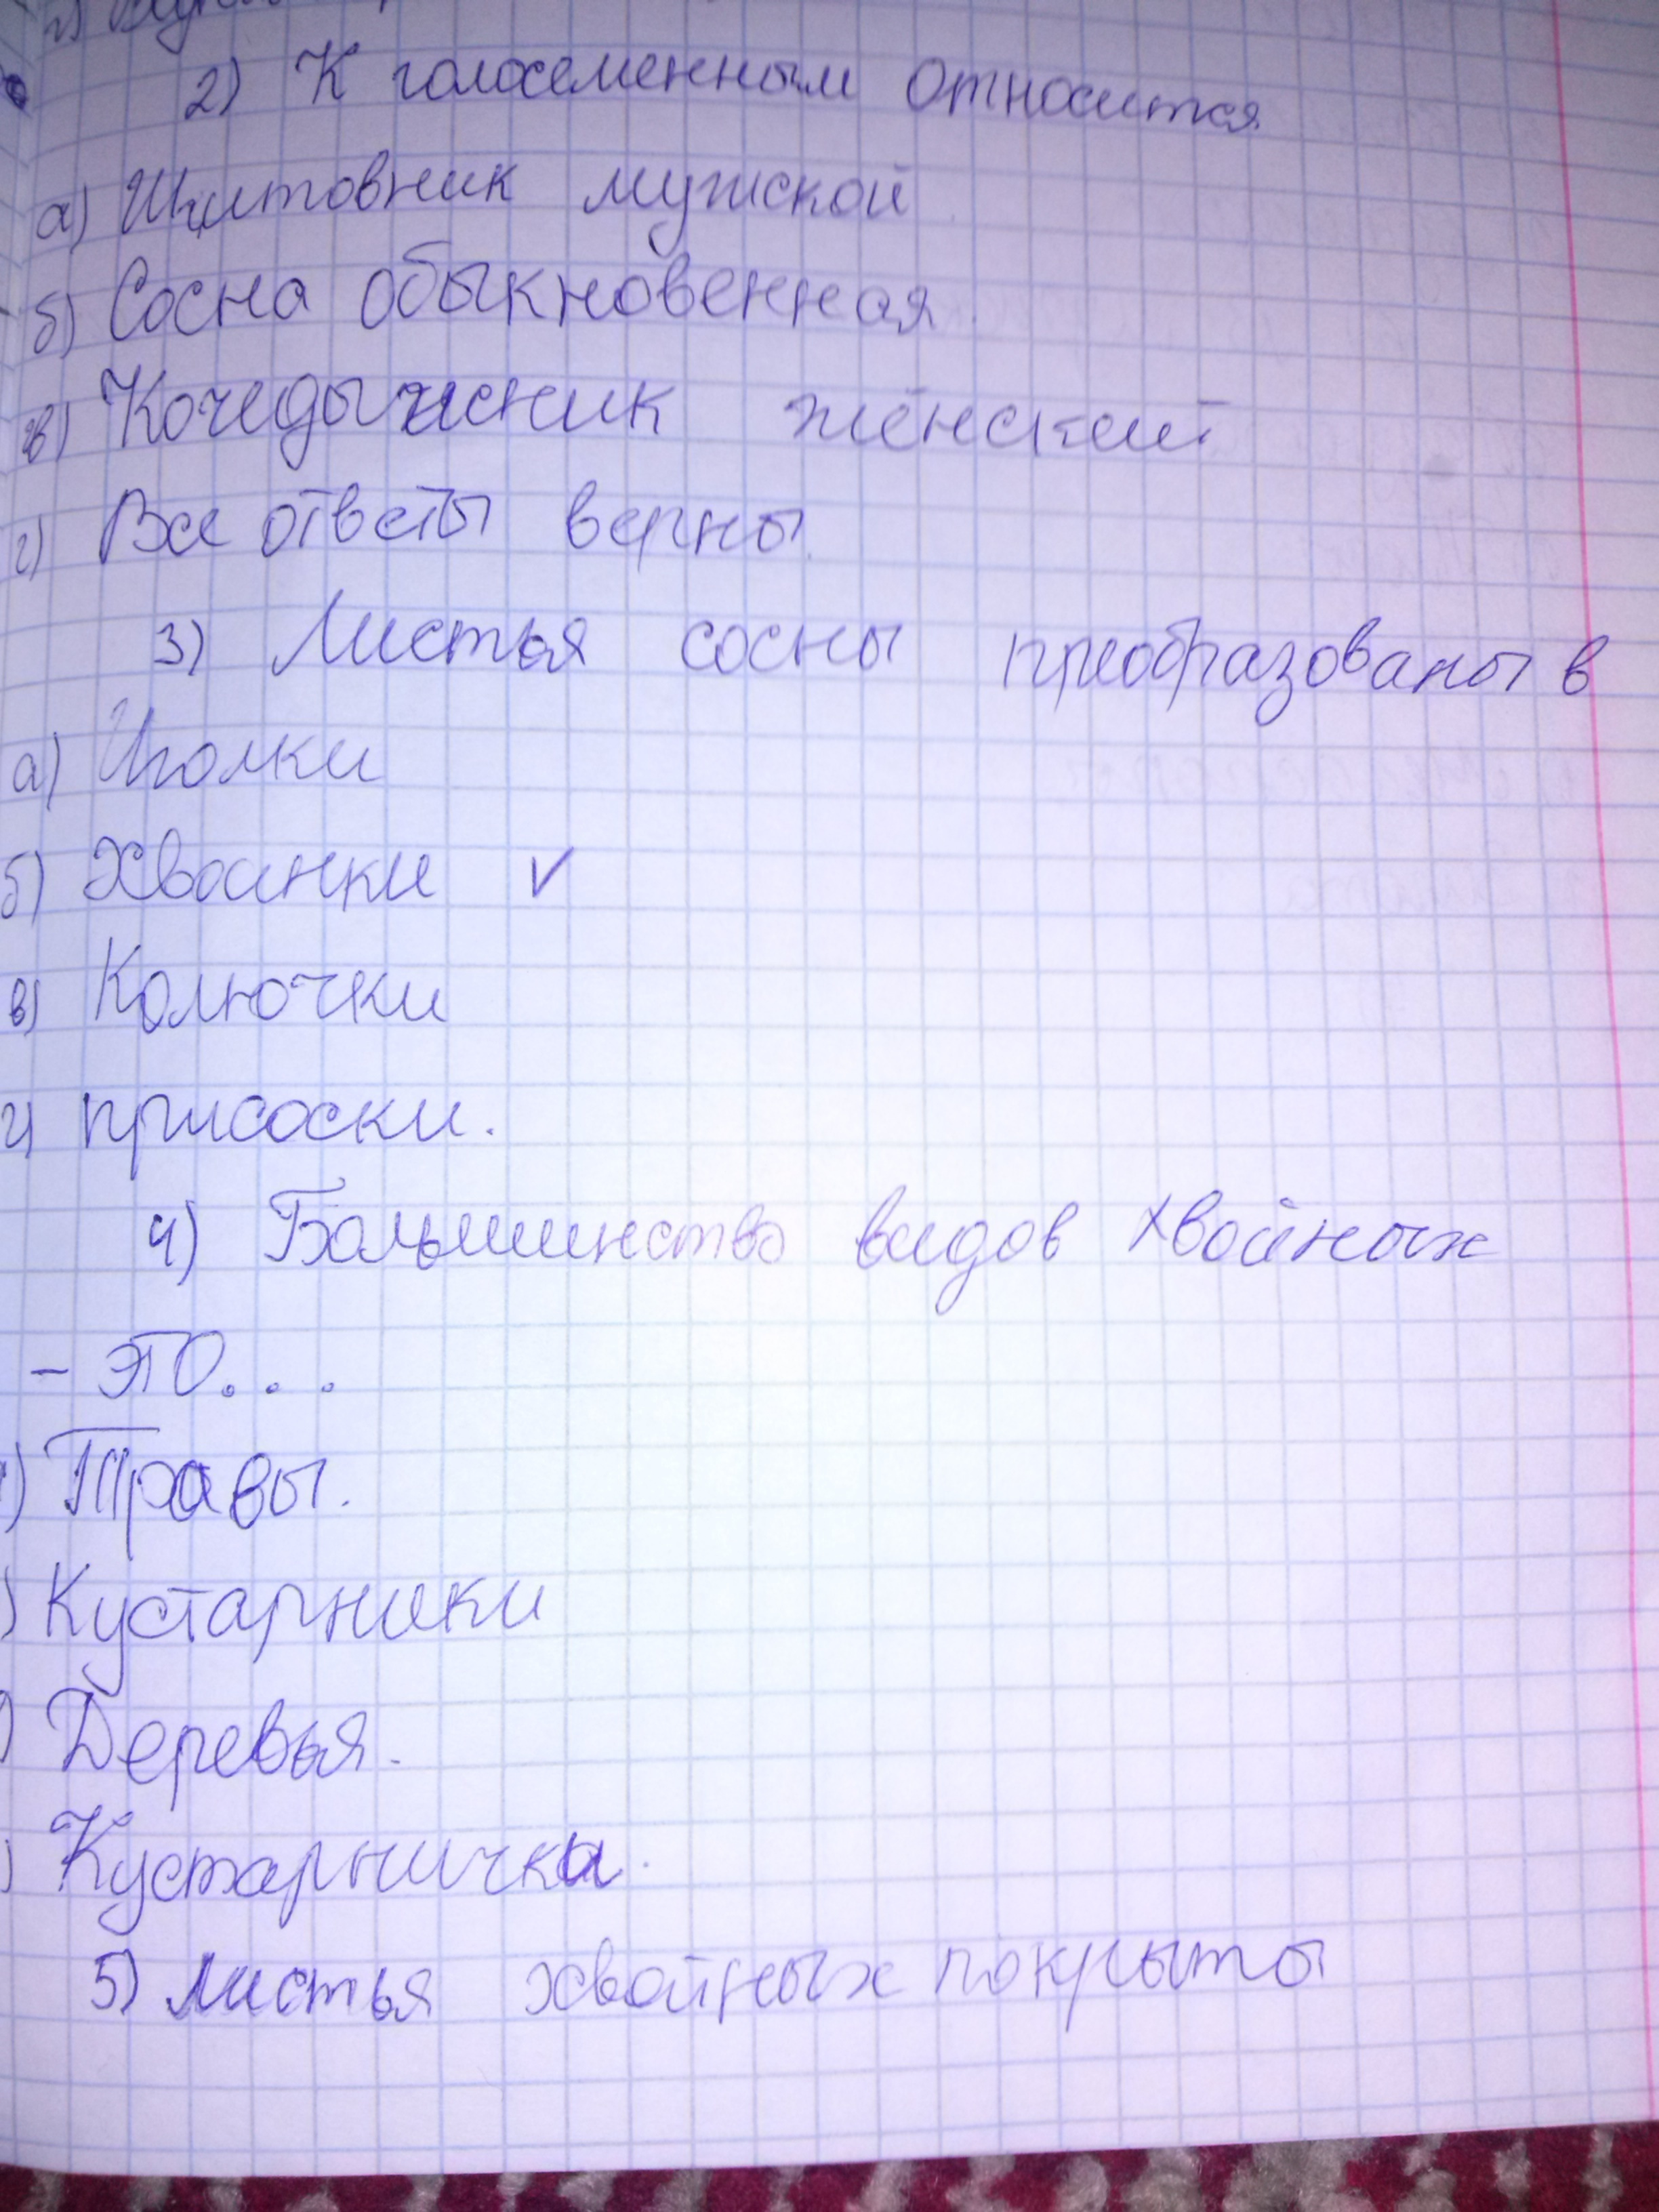 2) К голосеменным относится
а) Щитовник мужской
б) Сосна обыкновенная
в) Кочедыжник женский
г) Все ответы верны.
3) Листья сосны преобразованы в
а) Иголки
б) Хвоинки V
в) Колючки
г) присоски.
4) Большинство видов хвойных
- это...
) Травы.
) Кустарники
) Деревья.
) Кустарнички.
5) Листья хвойных покрыты